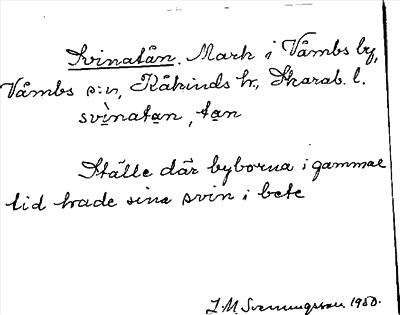 Svinatån. Mark i Våmbs by,
Våmbs s:n, Kåkinds hr., Skarab. l.
svìnatan, tan
Ställe där byborna i gammal
tid hade sina svin i bete
J. M. Svenningsson. 1950.